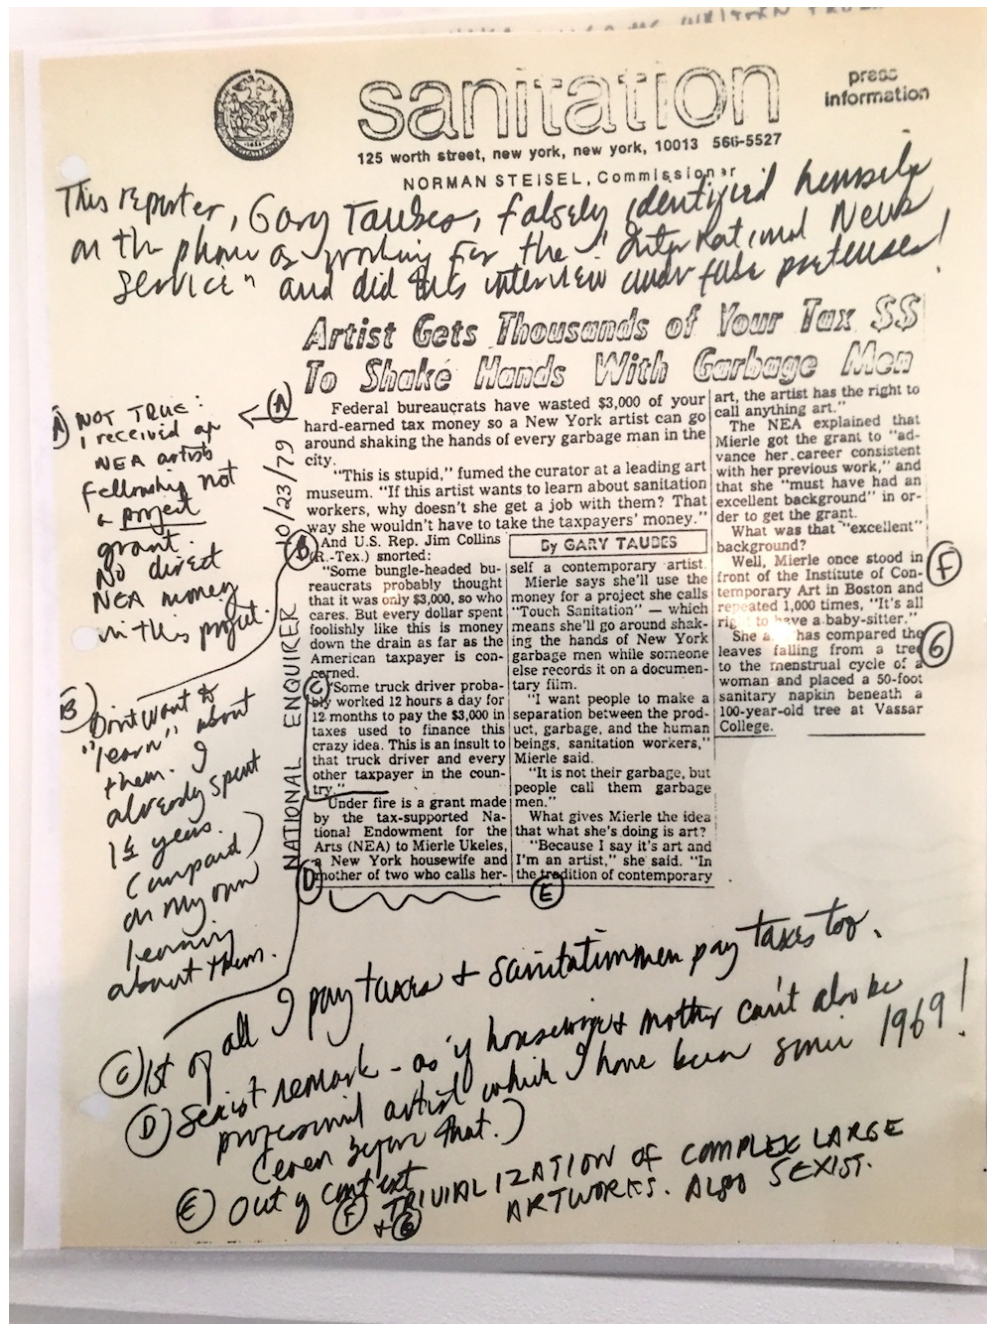 sanitation
press
information
125 worth street, new york, new york, 10013 566-5527
NORMAN STEISEL, Commissioner
This reporter, Gary Taubes, falsely identified himself
on the phone as working for the "International News
Service" and did this interview under false pretenses!
Artist Gets Thousands of Your Tax $$
To Shake Hands With Garbage Men
A
Federal bureaucrats have wasted $3,000 of your
hard-earned tax money so a New York artist can go
around shaking the hands of every garbage man in the
city.
"This is stupid," fumed the curator at a leading art
museum. "If this artist wants to learn about sanitation
workers, why doesn't she get a job with them? That
way she wouldn't have to take the taxpayers' money."
B
And U.S. Rep. Jim Collins
(R.-Tex.) snorted:
"Some bungle-headed bu-
reaucrats probably thought
that it was only $3,000, so who
cares. But every dollar spent
foolishly like this is money
down the drain as far as the
American taxpayer is con-
cerned.
C
"Some truck driver proba-
bly worked 12 hours a day for
12 months to pay the $3,000 in
taxes used to finance this
crazy idea. This is an insult to
that truck driver and every
other taxpayer in the coun-
try."
Under fire is a grant made
by the tax-supported Na-
tional Endowment for the
Arts (NEA) to Mierle Ukeles,
a New York housewife and
D
mother of two who calls her-
By GARY TAUBES
self a contemporary artist.
Mierle says she'll use the
money for a project she calls
"Touch Sanitation" — which
means she'll go around shak-
ing the hands of New York
garbage men while someone
else records it on a documen-
tary film.
"I want people to make a
separation between the prod-
uct, garbage, and the human
beings, sanitation workers,"
Mierle said.
"It is not their garbage, but
people call them garbage
men."
What gives Mierle the idea
that what she's doing is art?
"Because I say it's art and
I'm an artist," she said. "In
the tradition of contemporary
E
art, the artist has the right to
call anything art."
The NEA explained that
Mierle got the grant to "ad-
vance her career consistent
with her previous work," and
that she "must have had an
excellent background" in or-
der to get the grant.
What was that "excellent"
background?
Well, Mierle once stood in
front of the Institute of Con-
temporary Art in Boston and
repeated 1,000 times, "It's all
right to have a baby-sitter."
F
She has compared the
leaves falling from a tree
to the menstrual cycle of a
woman and placed a 50-foot
sanitary napkin beneath a
100-year-old tree at Vassar
College.
G
NATIONAL ENQUIRER 10/23/79
A NOT TRUE:
I received an
NEA artists
fellowship not
a project
grant.
No direct
NEA money
in this project.
B Don't want to
"learn" about
them. I
already spent
1½ years
(unpaid)
on my own
learning
about them.
C 1st of all I pay taxes + sanitationmen pay taxes too.
D Sexist remark - as if housewife + mother can't also be
professional artist which I have been since 1969!
(even before that.)
E Out of context
F + G TRIVIALIZATION OF COMPLEX LARGE
ARTWORKS. ALSO SEXIST.